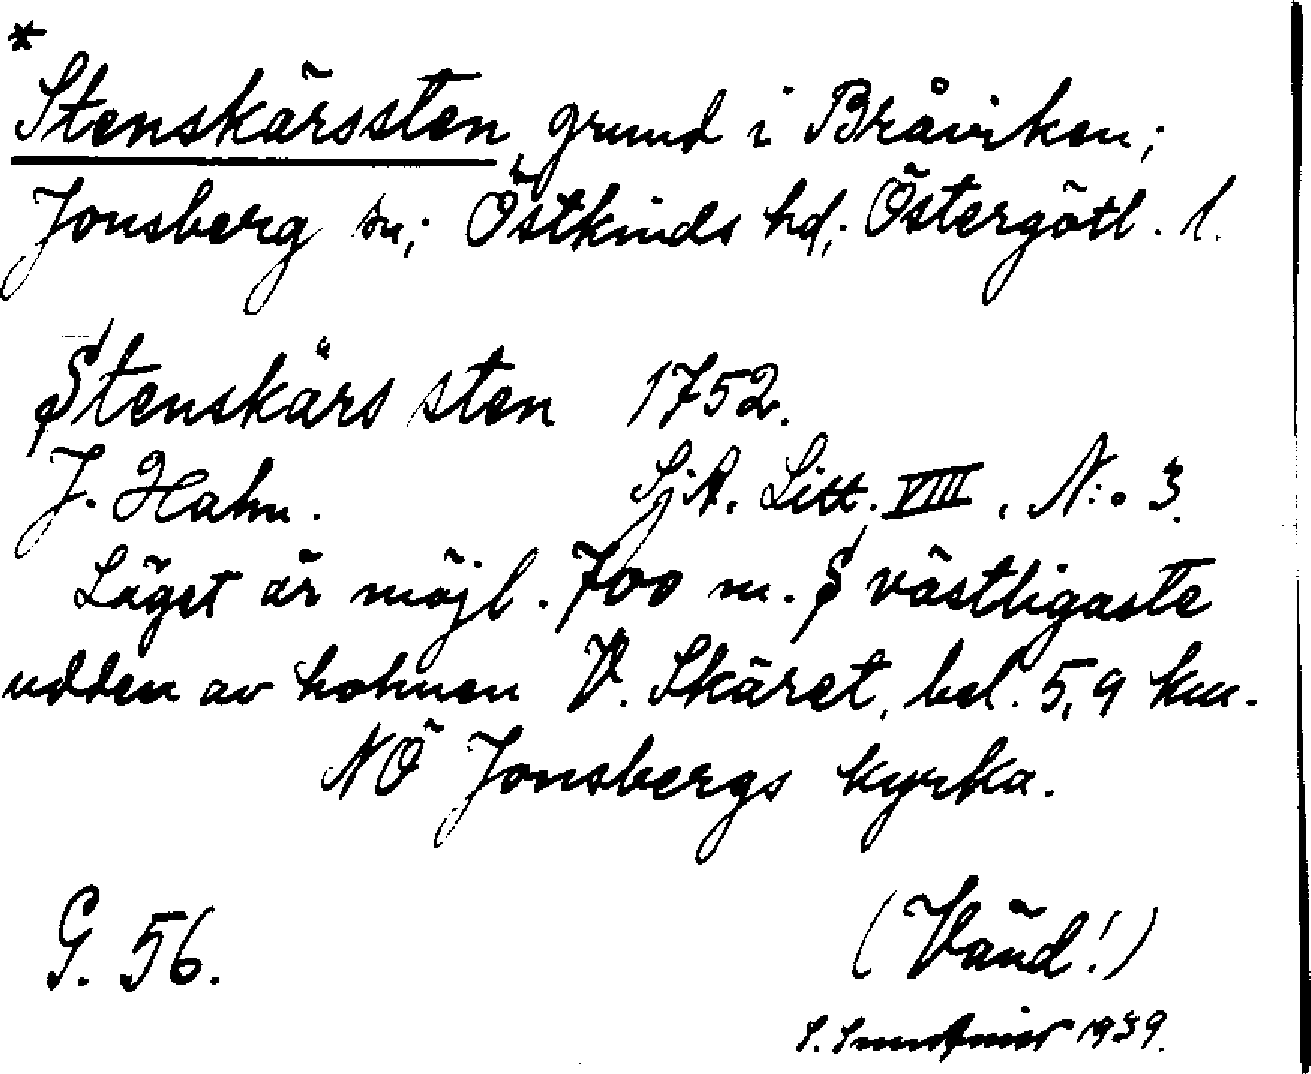 *
Stenskärssten, grund i Bråviken;
Jonsberg sn; Östkinds hd; Östergötl. l.
Stenskärs sten 1752.
J. Hahn. Sj.A. Litt. VIII. N:o 3.
Läget är möjl. 700 m. S västligaste
udden av holmen V. Skäret, bel. 5,9 km.
NÖ Jonsbergs kyrka.
G. 56. (Vänd!)
S. 1939.